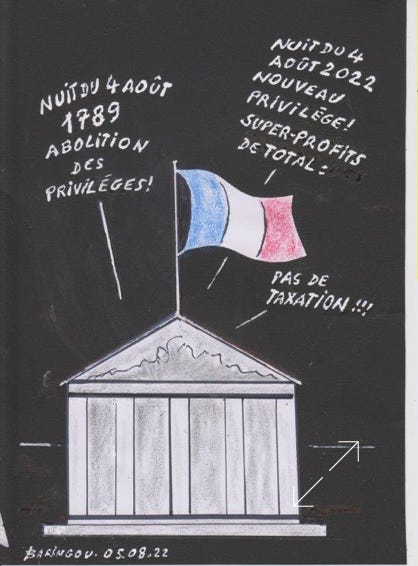 NUIT DU 4 AOÛT
1789
ABOLITION
DES
PRIVILÉGES!
NUIT DU 4
AOÛT 2022
NOUVEAU
PRIVILÈGE!
SUPER-PROFITS
DE TOTAL:
PAS DE
TAXATION!!!
BARINGOU. 05.08.22